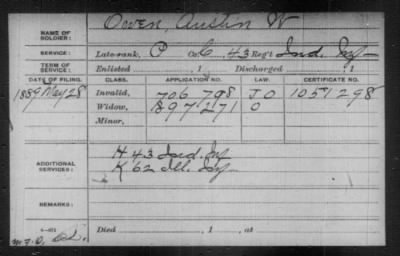 NAME OF SOLDIER: Owen, Austin W
SERVICE: Late rank, P Co. C, 43 Reg't Ind. Inf
TERM OF SERVICE: Enlisted , 1 Discharged , 1
DATE OF FILING. CLASS. APPLICATION NO. LAW. CERTIFICATE NO.
1889 May 28 Invalid, 706 798 JO 1051298
Widow, 897271 O
Minor,
ADDITIONAL SERVICES: H 43 Ind. Inf
K 62 Ill. Inf
REMARKS:
Died , 1 , at